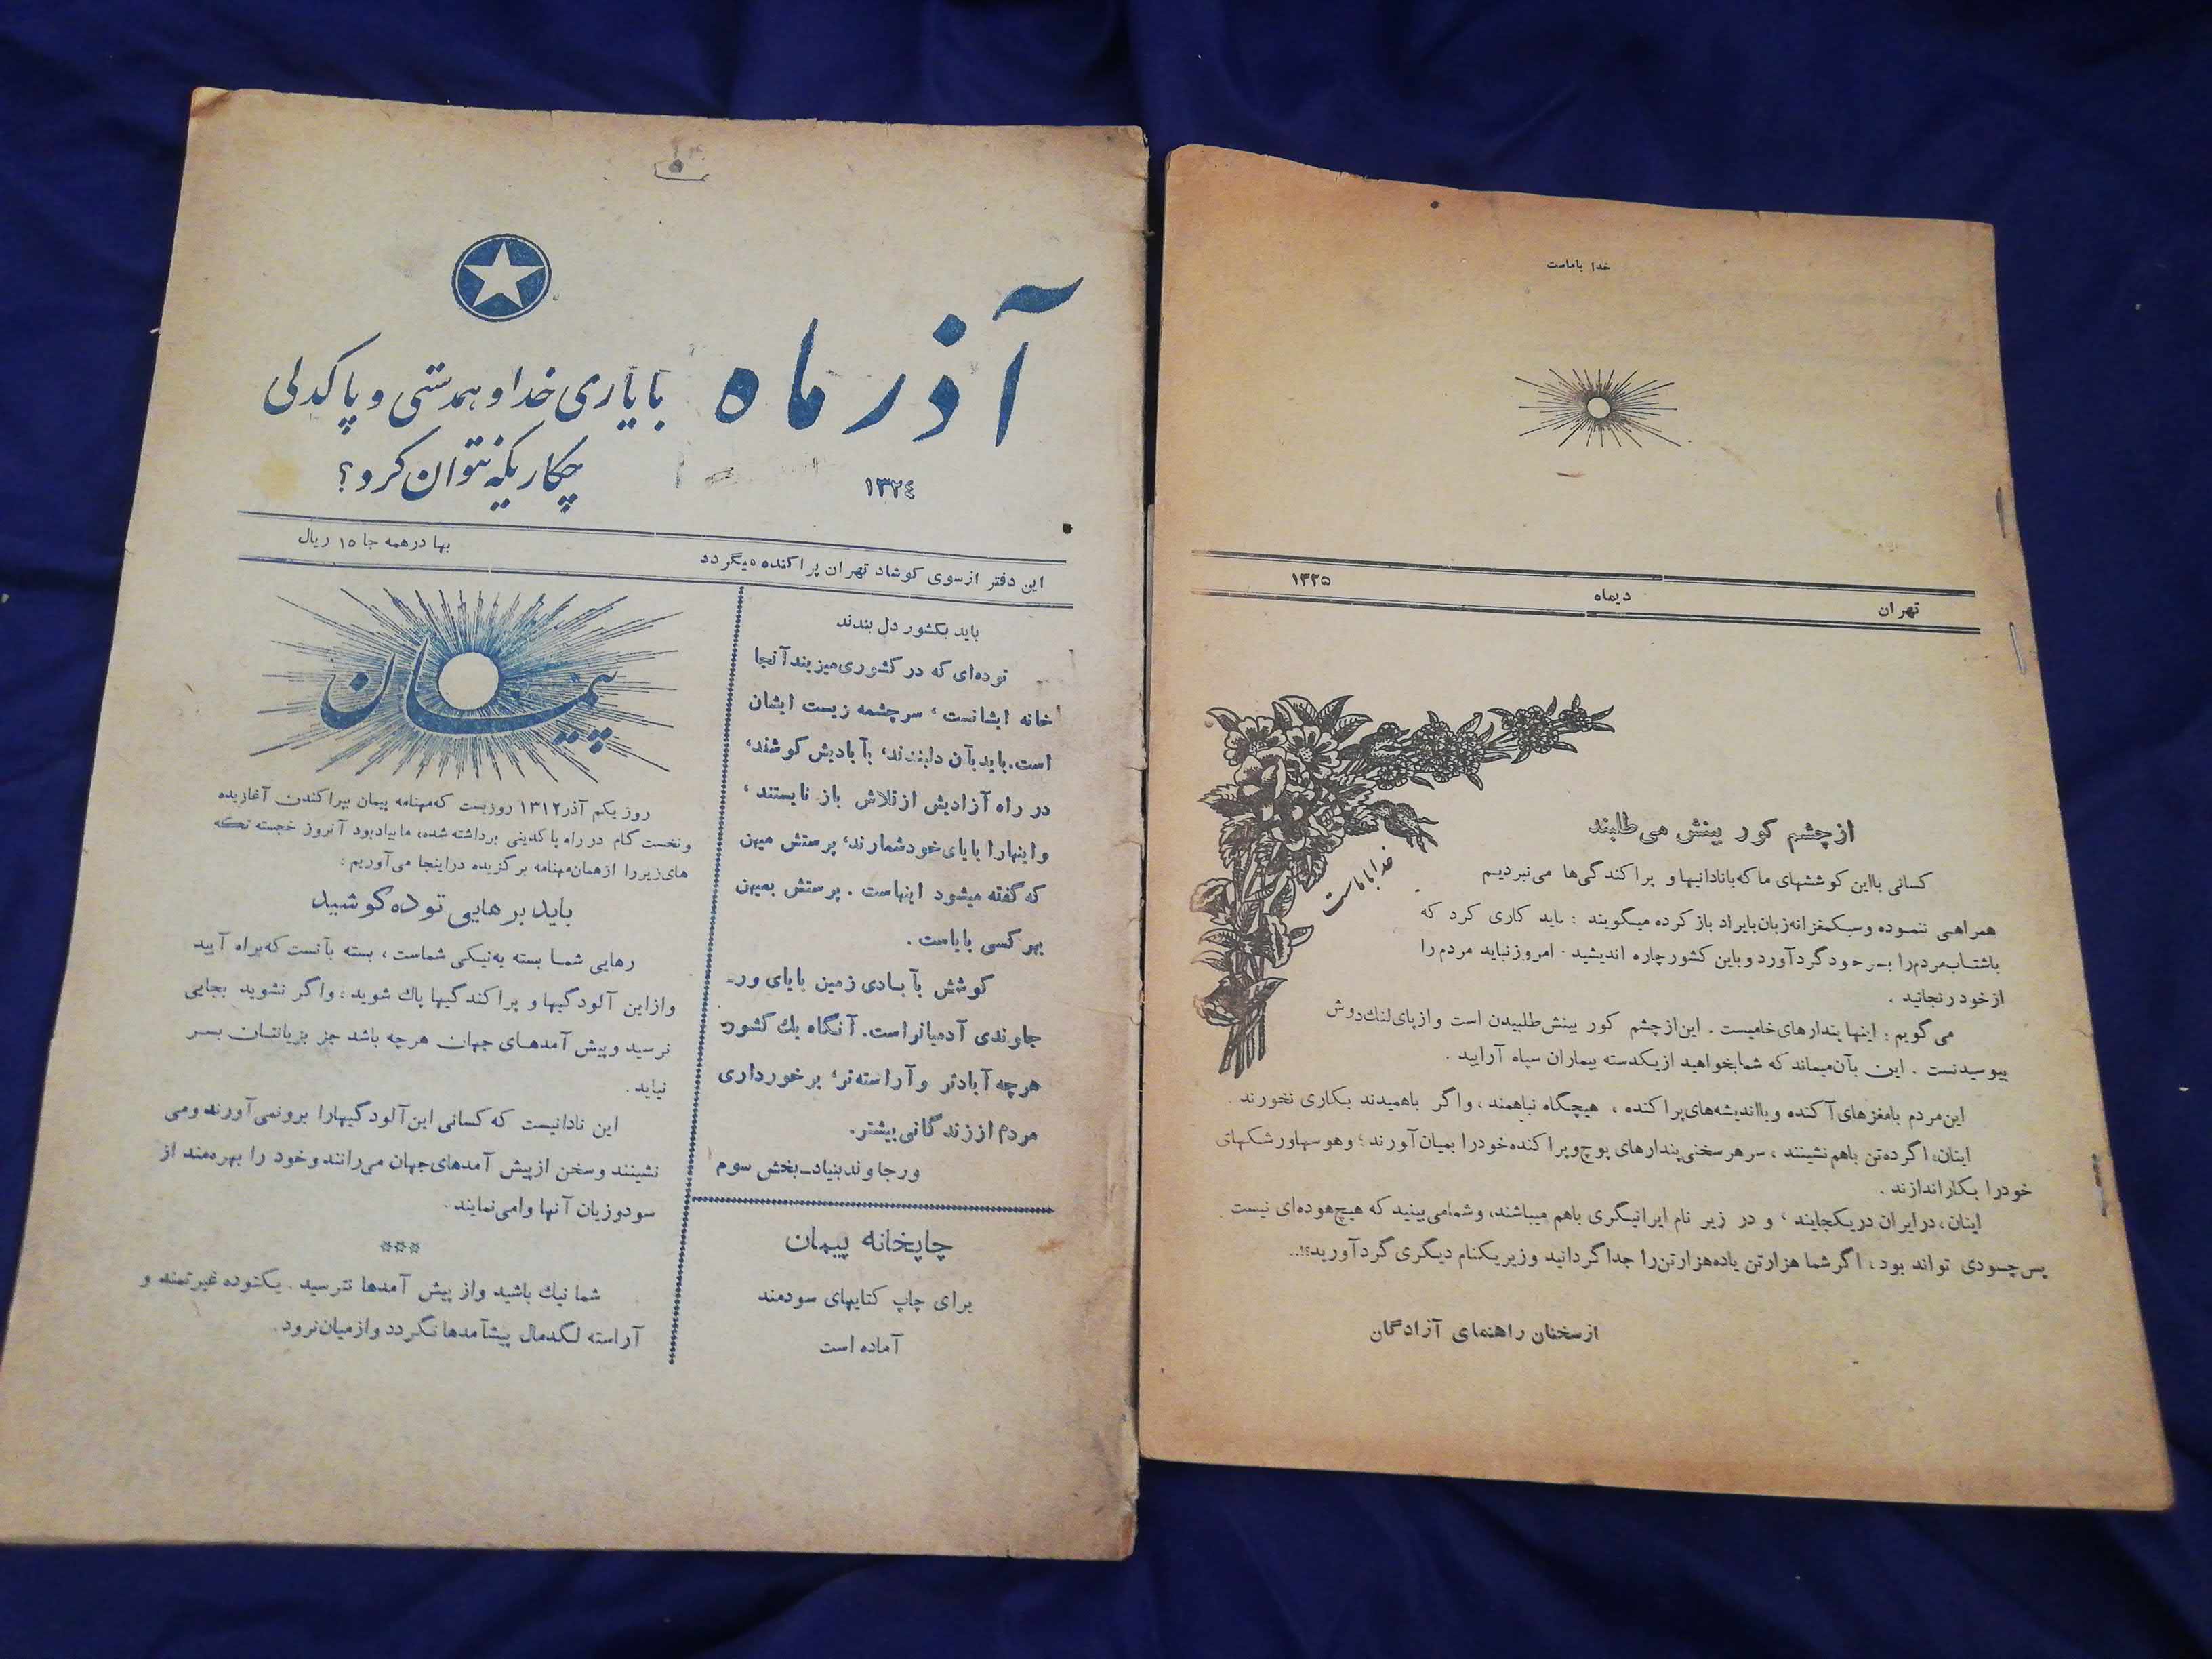 آذر ماه
۱۳۲۴
با یاری خدا و همدستی و پاکدلی
چکاریکه نتوان کرد؟
این دفتر ازسوی کوشاد تهران پراکنده میگردد
بها درهمه جا ۱۵ ریال
باید بکشور دل بندند
توده‌ای که در کشوری میزیند آنجا
خانه ایشانست ، سرچشمه زیست ایشان
است. باید بآن دلبندند، بآبادیش کوشند،
در راه آزادیش ازتلاش باز نایستند ،
و اینهارا بایای خودشمارند، پرستش میهن
که گفته میشود اینهاست . پرستش بمیهن
بهر کسی بایاست .
کوشش بآبادی زمین بایای ور-
جاوندی آدمیانراست. آنگاه یك کشور
هرچه آبادتر و آراسته‌تر، برخورداری
مردم از زندگانی بیشتر.
ورجاوندبنیاد_بخش سوم
چاپخانه پیمان
برای چاپ کتابهای سودمند
آماده است
پیمان
روز یکم آذر ۱۳۱۲ روزیست که مهنامه پیمان بپراکندن آغازیده
ونخست گام در راه پاکدینی برداشته شده، ما بیادبود آنروز خجسته تکه
های‌زیررا ازهمان‌مهنامه برگزیده دراینجا می‌آوریم:
باید برهایی توده کوشید
رهایی شما بسته به‌نیکی شماست ، بسته بآنست که‌براه آیید
وازاین آلودگیها و پراکندگیها پاك شوید ، واگر نشوید بجایی
نرسید وپیش آمدهای جهان هرچه باشد جز بزیانتان بسر
نیاید.
این نادانیست که کسانی این‌آلودگیهارا برونمی‌آورند ومی
نشینند وسخن ازپیش آمدهای‌جهان می‌رانند وخود را بهره‌مند از
سودوزیان آنها وامی‌نمایند.
***
شما نیك باشید واز پیش آمدها نترسید . یکتوده غیرتمند و
آراسته لگدمال پیشآمدها نگردد وازمیان نرود.
خدا باماست
تهران
دیماه
۱۳۲۵
خدا با ماست
ازچشم کور بینش می‌طلبند
کسانی بااین کوششهای ما که بانادانیها و پراکندگی‌ها می‌نبردیم
همراهی ننموده وسبکمغزانه زبان‌بایراد باز کرده میگویند : باید کاری کرد که
باشتاب مردم را بسر خود گردآورد و باین کشور چاره اندیشید . امروز نباید مردم را
ازخود رنجانید .
می گویم : اینها پندارهای خامیست . این‌ازچشم کور بینش طلبیدن است و از پای لنك دوش
بیوسیدنست . این بآن میماند که شما بخواهید ازیکدسته بیماران سپاه آرایید .
این مردم بامغزهای آکنده و بااندیشه‌های پراکنده ، هیچگاه نباهمند ، واگر باهمیدند بکاری نخورند .
اینان، اگر ده‌تن باهم نشینند ، سر هر سخنی پندارهای پوچ و پراکنده خودرا بمیان آورند ؛ وهوسها و رشکهای
خودرا بکار اندازند .
اینان ، در ایران دریکجایند ، و در زیر نام ایرانیگری باهم میباشند ، و شما می‌بینید که هیچ هوده‌ای نیست .
پس چسودی تواند بود ، اگر شما هزارتن یاده‌هزارتن‌را جدا گردانید وزیریکنام دیگری گردآورید؟!..
ازسخنان راهنمای آزادگان